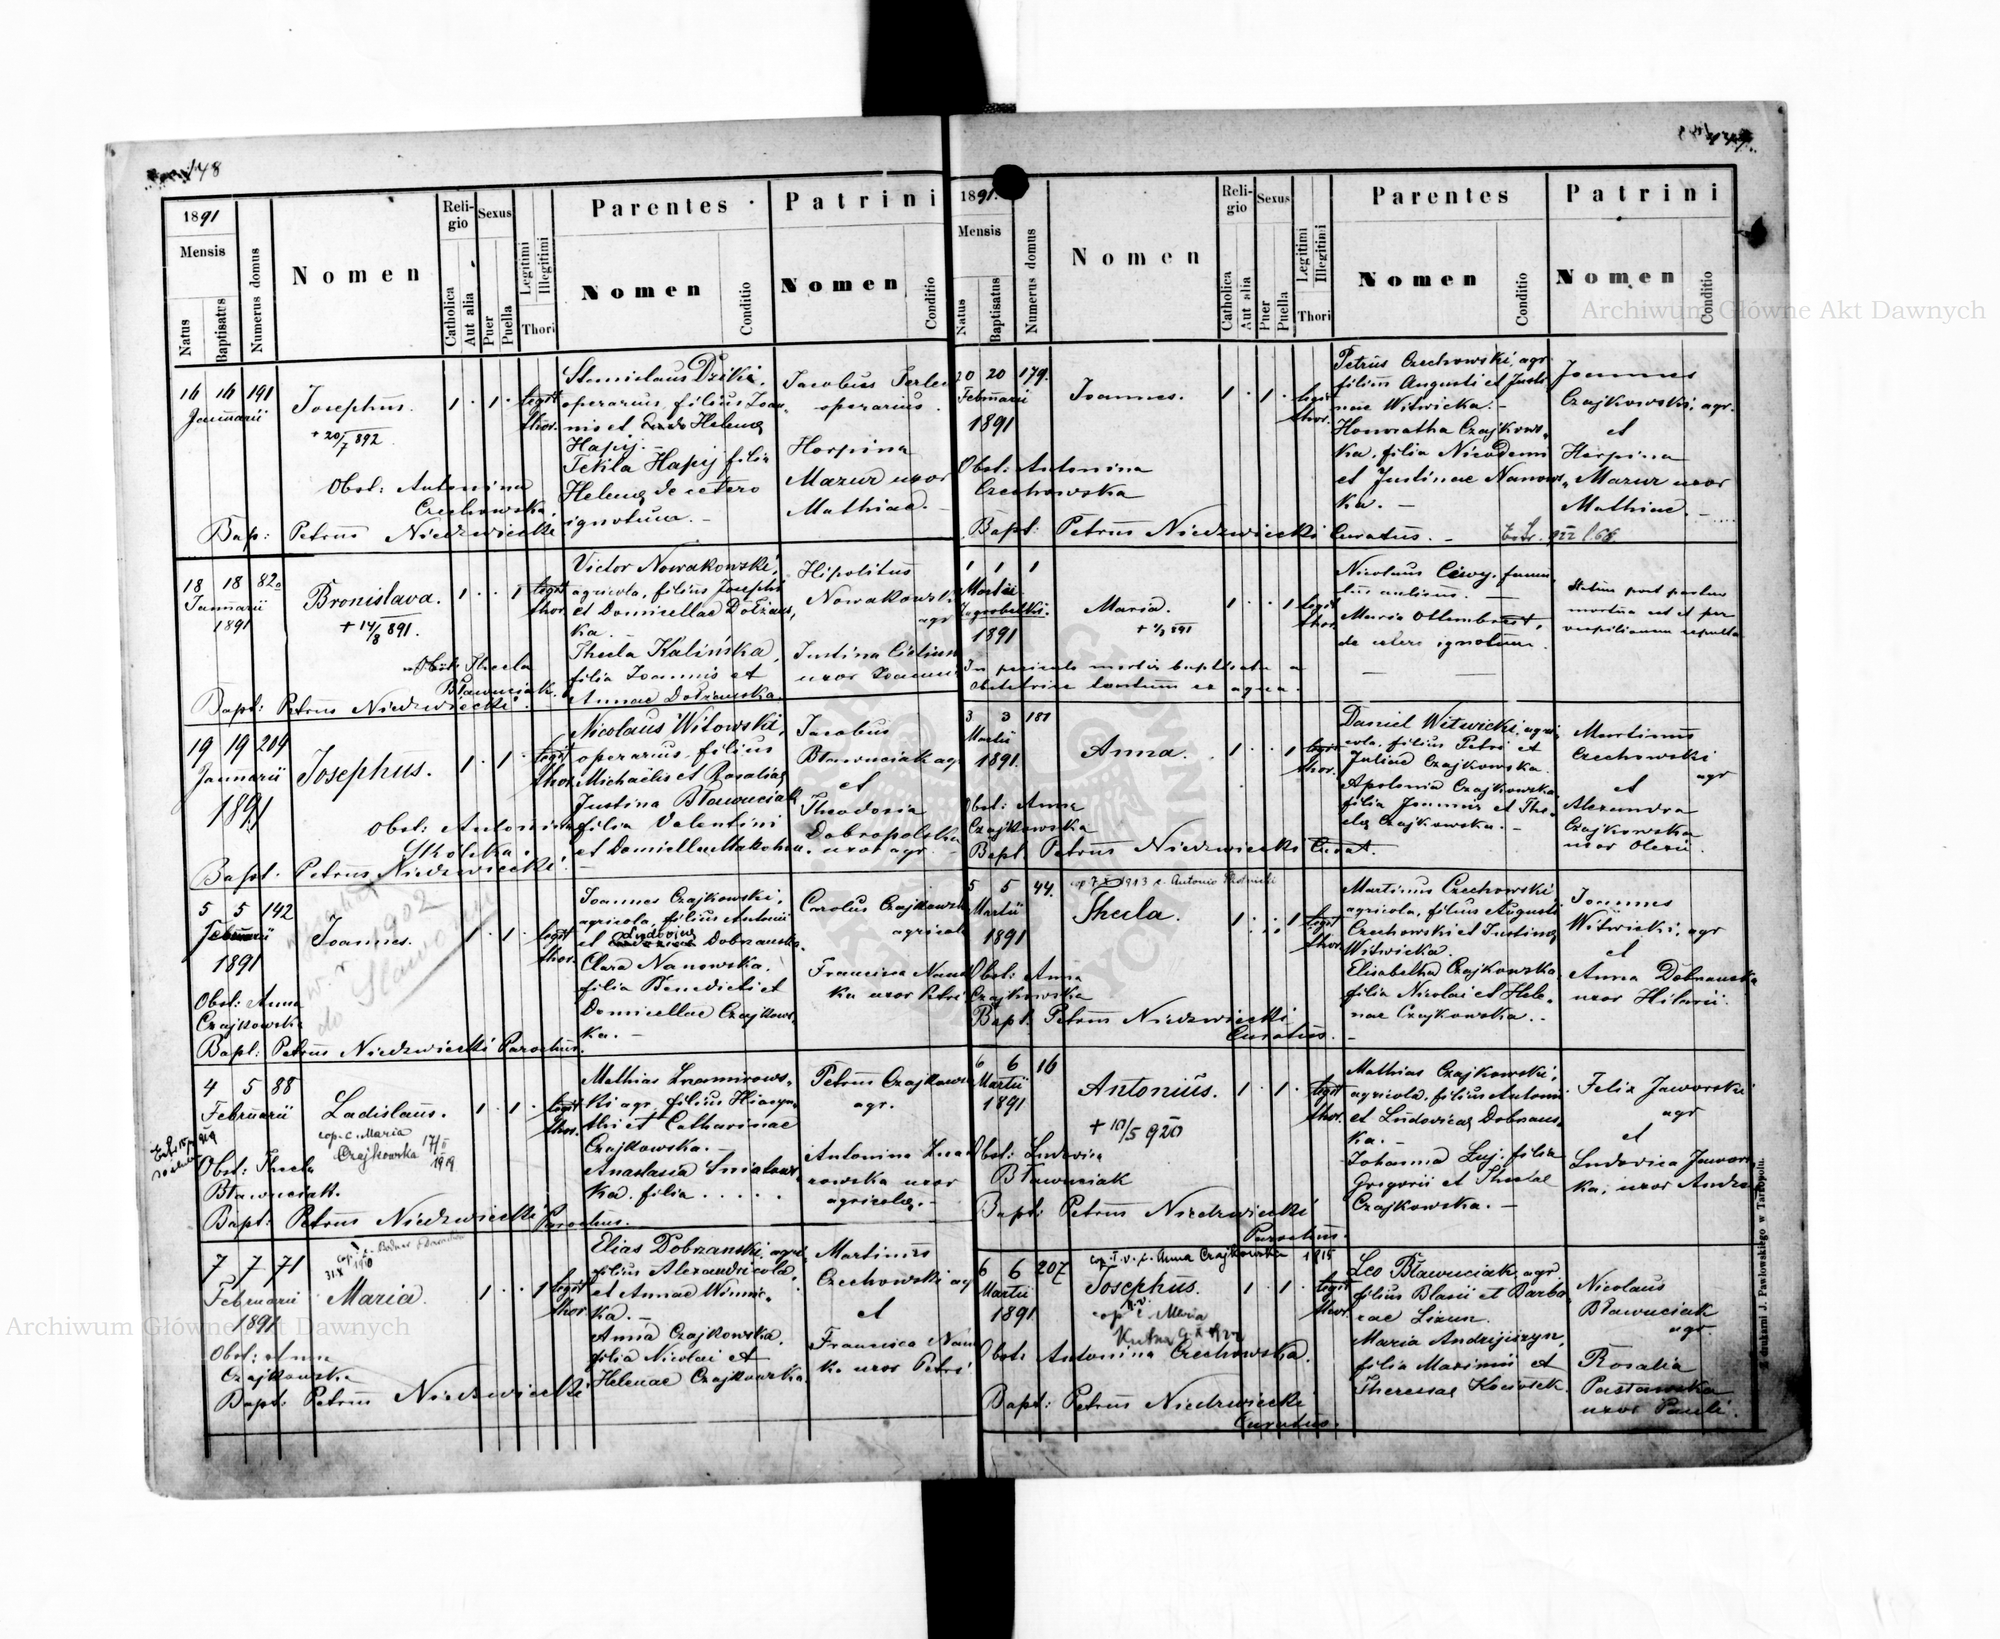 148
1891
Mensis
Natus
Baptisatus
Numerus domus
Nomen
Religio
Catholica
Aut alia
Sexus
Puer
Puella
Legitimi
Illegitimi
Thori
Parentes
Nomen
Conditio
Patrini
Nomen
Conditio
16 16 191
Januarii
Josephus.
+ 20/7 892
1 · 1 ·
legit
thor.
Stanislaus Dziki,
operarius, filius Joan-
nis et Helenae
Hapij. —
Tekla Hapij filia
Helenae de cetero
ignotum. —
Jacobus
operarius.
Horpina
Mazur uxor
Mathiae. —
Obst: Antonina
Czechowska.
Bap: Petrus Niedzwiecki
18 18 82
Januarii
1891
Bronislava.
+ 14/8 891.
1 · · 1
legit
thor.
Victor Nowakowski,
agricola, filius Josephi
et Domicellae Dobrans,
ka. —
Thecla Kalińska,
filia Joannis et
Annae Dobranska.
Hipolitus
Nowakowski
agr
Justina
uxor Joannis
Obst: Thecla
Bławuciak.
Bapt: Petrus Niedzwiecki.
19 19 209
Januarii
1891
Josephus.
1 · 1 ·
legit
thor.
Nicolaus Witowski,
operarius, filius
Michaelis et Rosaliae
Justina Bławuciak
filia Valentini
et Domicellae
Jacobus
Bławuciak agr
et
Theodosia
Dobropolska
uxor agr.
Obst: Antonina
Skólska.
Bapt. Petrus Niedzwiecki.
5 5 142
Februarii
1891
Joannes.
1902
Sławonia
1 · 1 ·
legit
thor.
Joannes Czajkowski,
agricola, filius Antonii
et Ludovicae Dobranska.
Clara Nanowska,
filia Benedicti et
Domicellae Czajkows,
ka. —
Carolus Czajkowski
agricola
Francisca
ka uxor Petri
Obst: Anna
Czajkowska
Bapt: Petrus Niedzwiecki Parochus.
4 5 88
Februarii
Ladislaus.
cop. c. Maria
Czajkowska 17/II
1919
1 · 1 ·
legit
thor.
Mathias
ki agr, filius Hiacyn,
thi et Catharinae
Czajkowska. —
Anastasia
ka, filia . . . . .
Petrus Czajkowski
agr.
Antonina
rowska uxor
agricolae. —
Obst: Thecla
Bławuciak.
Bapt: Petrus Niedzwiecki Parochus.
7 7 71
Februarii
1891
31.X 1910
Maria.
1 · · 1
legit
thor.
Elias Dobranski, agri
filius Alexandri cola,
et Annae Winnic,
ka. —
Anna Czajkowska,
filia Nicolai et
Helenae Czajkowska.
Martinus
Czechowski agr
et
Francisca
ka uxor Petri
Obst: Anna
Czajkowska
Bapt: Petrus Niedzwiecki
149
1891.
Mensis
Natus
Baptisatus
Numerus domus
Nomen
Religio
Catholica
Aut alia
Sexus
Puer
Puella
Legitimi
Illegitimi
Thori
Parentes
Nomen
Conditio
Patrini
Nomen
Conditio
20 20 179.
Februarii
1891
Joannes.
1 · 1 ·
legit
thor.
Petrus Czechowski, agr.
filius Augusti et Justi
nae Witwicka. —
Honoratha Czajkows,
ka, filia Nicodemi
et Justinae Nanows,
ka. —
Joannes
Czajkowski, agr.
et
Horpina
Mazur uxor
Mathiae. —
Obst: Antonina
Czechowska
Bapt: Petrus Niedzwiecki Curatus. —
1 1 1
Martii
1891
Maria.
1 · · 1
legit
thor.
Nicolaus
Maria
de cetero ignotum.
Statim post partum
mortua est et per
sepulta
In periculo mortis baptisata a
obstetrice tantum ex aqua.
3 3 181
Martii
1891.
Anna.
1 · · 1
legit
thor.
Daniel Witwicki, agri,
cola, filius Petri et
Juliae Czajkowska.
Apolonia Czajkowska
filia Joannis et The,
clae Czajkowska. —
Martinus
Czechowski
agr
et
Alexandra
Czajkowska
uxor Olexii.
Obst: Anna
Czajkowska
Bapt. Petrus Niedzwiecki Curat.
5 5 44.
Martii
1891
1913 c. Antonio
Thecla.
1 · · 1
legit
thor.
Martinus Czechowski
agricola, filius Augusti
Czechowski et Justinae
Witwicka.
Elisabetha Czajkowska
filia Nicolai et Hele,
nae Czajkowska. —
Joannes
Witwicki, agr
et
Anna Dobranska
uxor Hilarii.
Obst: Anna
Czajkowska
Bapt. Petrus Niedzwiecki
Curatus. —
6 6 16
Martii
1891
Antonius.
+ 10/5 920
1 · 1 ·
legit
thor.
Mathias Czajkowski,
agricola, filius Antonii
et Ludovicae Dobrans,
ka. —
Johanna filia
Gregorii et Theclae
Czajkowska. —
Felix Jaworski
agr
et
Ludovica Jawors
ka, uxor
Obst: Ludovica
Bławuciak
Bapt: Petrus Niedzwiecki
Parochus.
6 6 207
Martii
1891
cop. I. v. c. Anna Czajkowska 1915
Josephus.
cop. II v. c. Maria
1 · 1 ·
legit
thor.
Leo Bławuciak, agr
filius Blasii et Barba
rae
Maria Andrijiszyn,
filia Maximi et
Theresiae
Nicolaus
Bławuciak
agr.
Rosalia
Pasławska
uxor Pauli.
Obst: Antonina Czechowska.
Bapt: Petrus Niedzwiecki
Curatus.
Z drukarni J. Pawłowskiego w Tarnopolu.
Archiwum Główne Akt Dawnych
Archiwum Główne Akt Dawnych